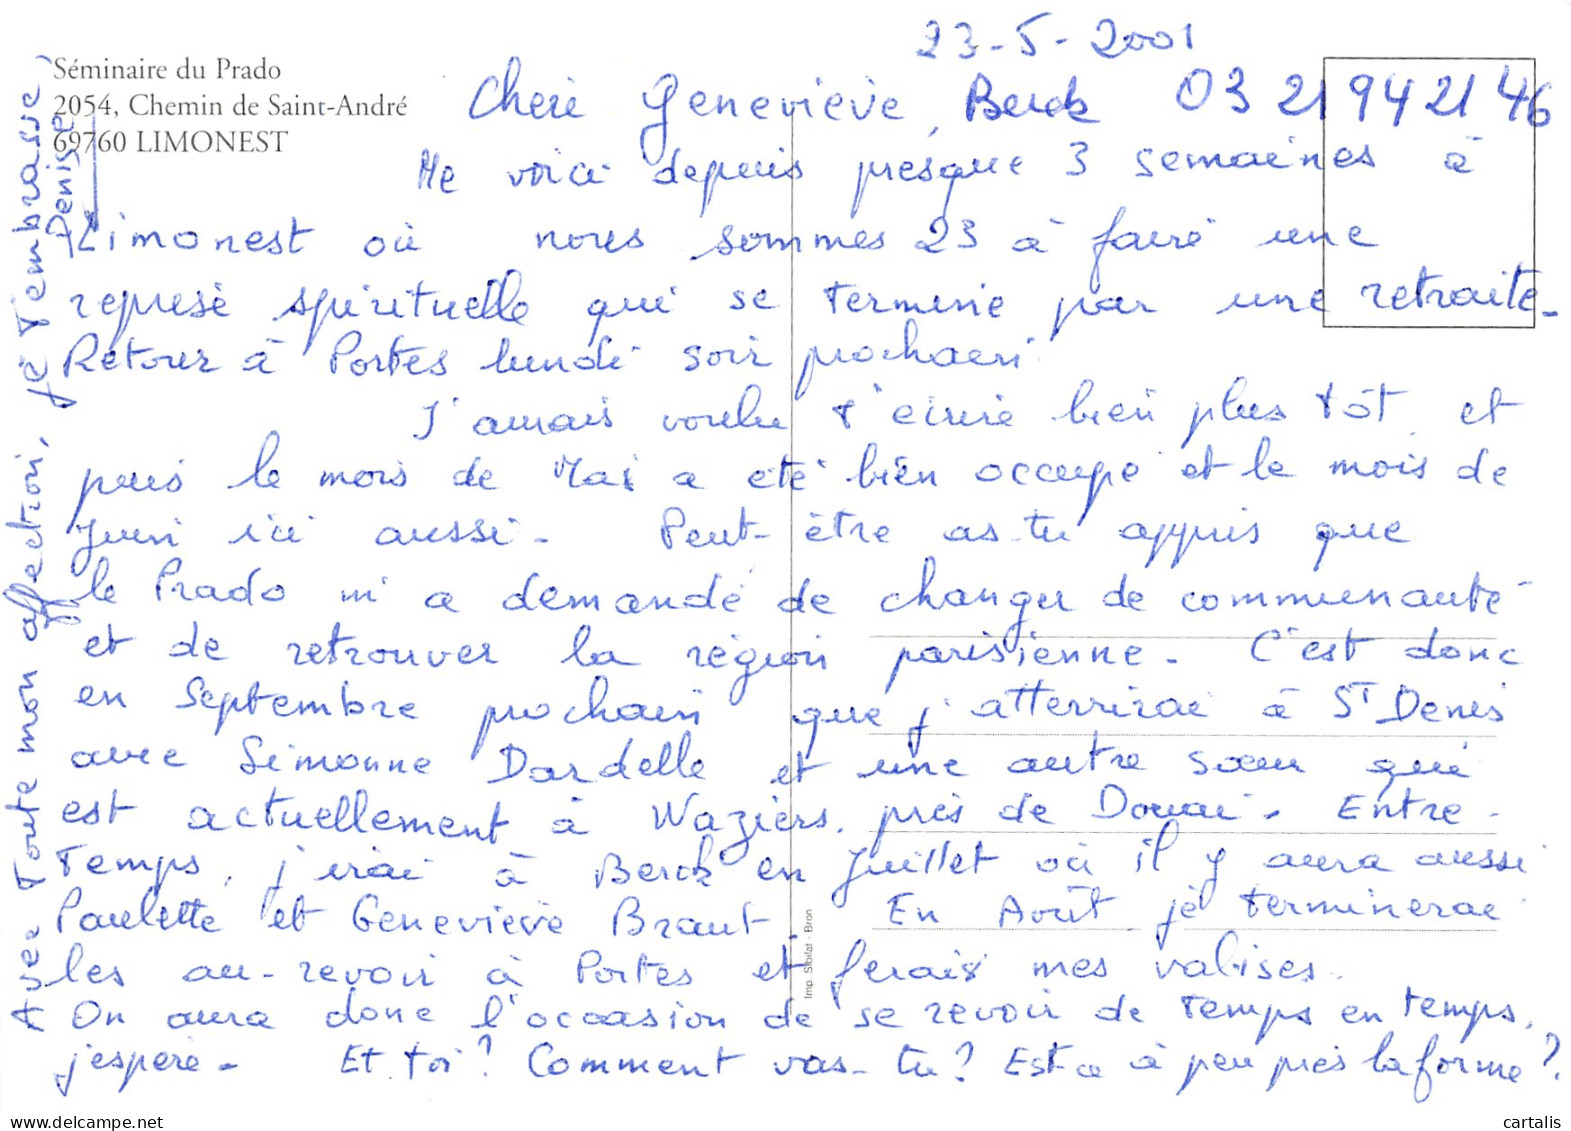 23-5-2001
Séminaire du Prado
2054, Chemin de Saint-André
69760 LIMONEST
Chère Geneviève, Berck 03 21 94 21 46
Me voici depuis presque 3 semaines à
Limonest où nous sommes 23 à faire une
reprise spirituelle qui se termine par une retraite.
Retour à Portes lundi soir prochain
J'aurais voulu t'écrire bien plus tôt et
puis le mois de Mai a été bien occupé et le mois de
Juin ici aussi. Peut-être as-tu appris que
le Prado m'a demandé de changer de communauté
et de retrouver la région parisienne. C'est donc
en Septembre prochain que j'atterrirai à St Denis
avec Simonne Dardelle et une autre sœur qui
est actuellement à Waziers, près de Douai. Entre-
Temps, j'irai à Berck en Juillet où il y aura aussi
Paulette et Geneviève Braut. En Août je terminerai
les au-revoir à Portes et ferais mes valises.
On aura donc l'occasion de se revoir de temps en temps,
j'espère. Et toi? Comment vas-tu? Est-ce à peu près la forme?
Avec toute mon affection, je t'embrasse
Denise
Imp. Sibilat - Bron
delcampe.net
cartalis